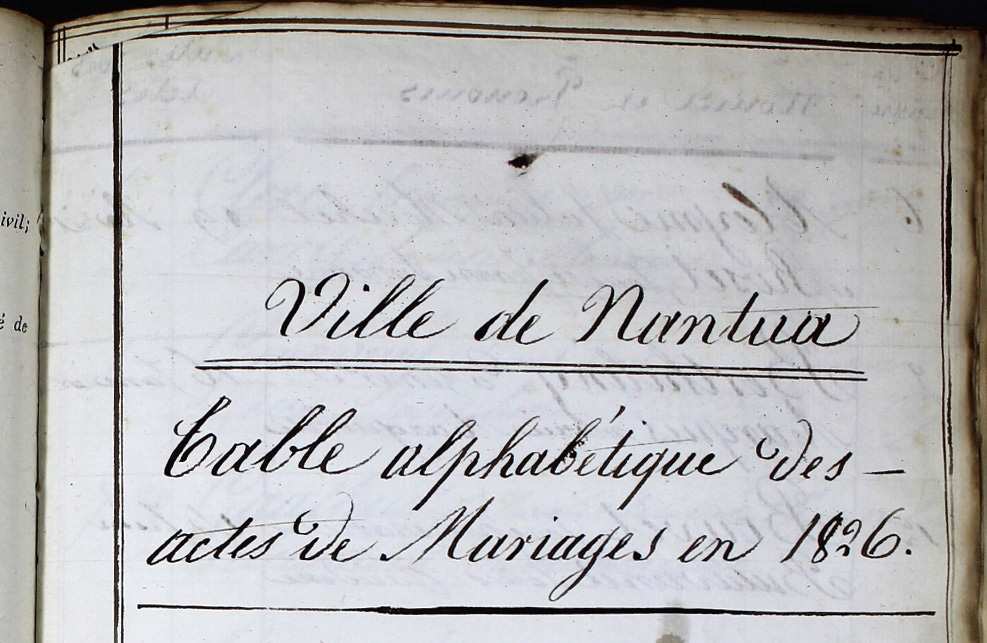 ivil;
é de
Ville de Nantua
Table alphabétique des —
actes de Mariages en 1826.